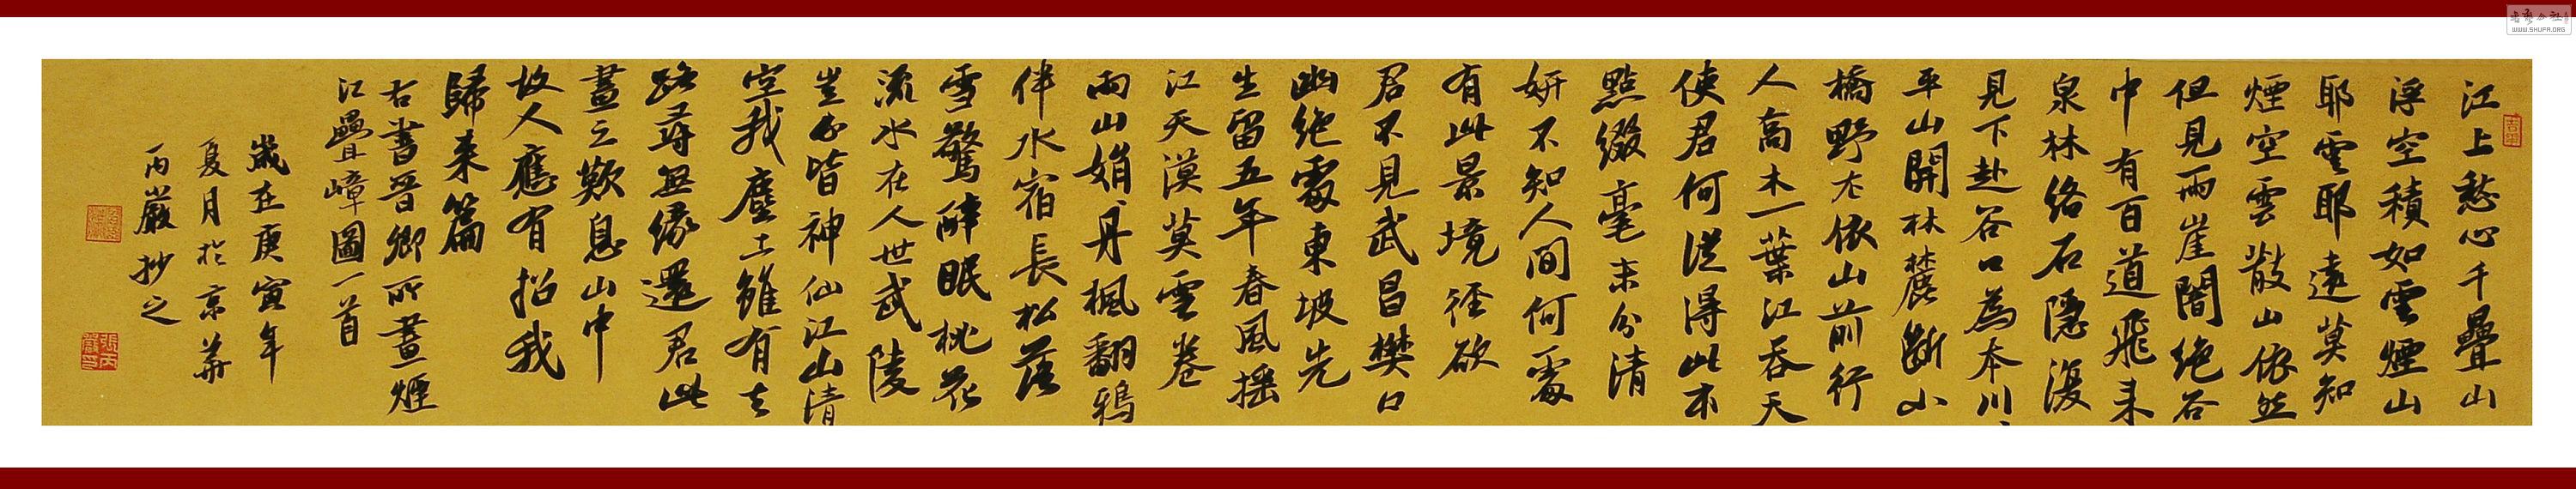 江上愁心千疊山
浮空積如雲煙山
耶雲耶遠莫知
煙空雲散山依然
但見兩崖闇絶谷
中有百道飛来
泉林絡石隱復
見下赴谷口為奔川
平山開林麓斷小
橋野店依山前行
人高木一葉江吞天
使君何從得此本
點綴毫末分清
妍不知人間何處
有此景境徑欲
君不見武昌樊口
幽絶處東坡先
生留五年春風摇
江天漠莫雲卷
雨山娟丹楓翻鴉
伴水宿長松落
雪驚醉眠桃花
流水在人世武陵
豈必皆神仙江山清
空我塵土雖有去
路尋無緣還君此
畫之歎息山中
故人應有招我
歸来篇
右書晋卿所畫煙
江疊嶂圖一首
歲在庚寅年
夏月於京華
丙巖抄之
張丙巖印
WWW.SHUFA.ORG